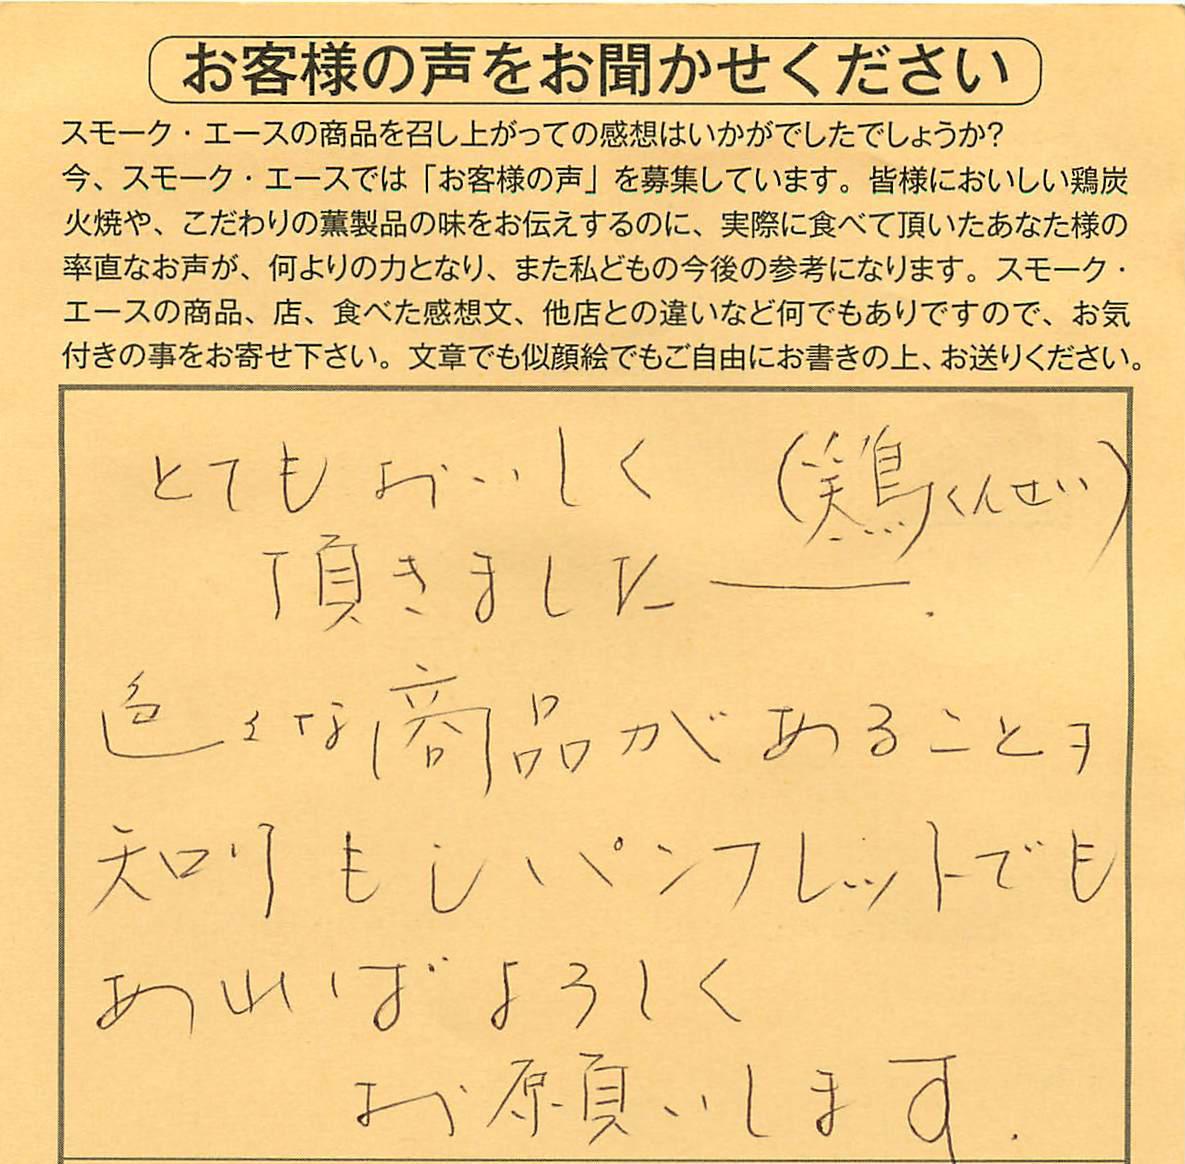 お客様の声をお聞かせください
スモーク・エースの商品を召し上がっての感想はいかがでしたでしょうか?
今、スモーク・エースでは「お客様の声」を募集しています。皆様においしい鶏炭
火焼や、こだわりの薫製品の味をお伝えするのに、実際に食べて頂いたあなた様の
率直なお声が、何よりの力となり、また私どもの今後の参考になります。スモーク・
エースの商品、店、食べた感想文、他店との違いなど何でもありですので、お気
付きの事をお寄せ下さい。文章でも似顔絵でもご自由にお書きの上、お送りください。
とてもおいしく (鶏くんせい)
頂きました――.
色々な商品があることヲ
知りもしパンフレットでも
あればよろしく
お願いします.